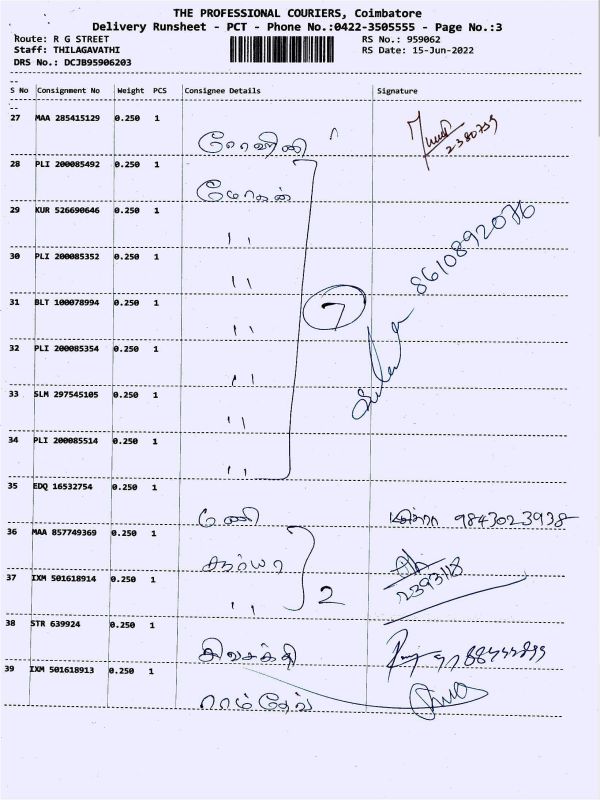 THE PROFESSIONAL COURIERS, Coimbatore
Delivery Runsheet - PCT - Phone No.:0422-3505555 - Page No.:3
Route: R G STREET
RS No.: 959062
Staff: THILAGAVATHI
RS Date: 15-Jun-2022
DRS No.: DCJB95906203
S No Consignment No Weight PCS Consignee Details Signature
27 MAA 285415129 0.250 1
ரோஹிணி
2380739
28 PLI 200085492 0.250 1
மோகன்
29 KUR 526690646 0.250 1
" 8610892076
30 PLI 200085352 0.250 1
"
31 BLT 100078994 0.250 1
" 7
32 PLI 200085354 0.250 1
"
33 SLM 297545105 0.250 1
"
34 PLI 200085514 0.250 1
"
35 EDQ 16532754 0.250 1
மணி 9843023938
36 MAA 857749369 0.250 1
சூர்யா
2393118
37 IXM 501618914 0.250 1
" 2
38 STR 639924 0.250 1
சிவசக்தி
39 IXM 501618913 0.250 1
ராம்தேவ்